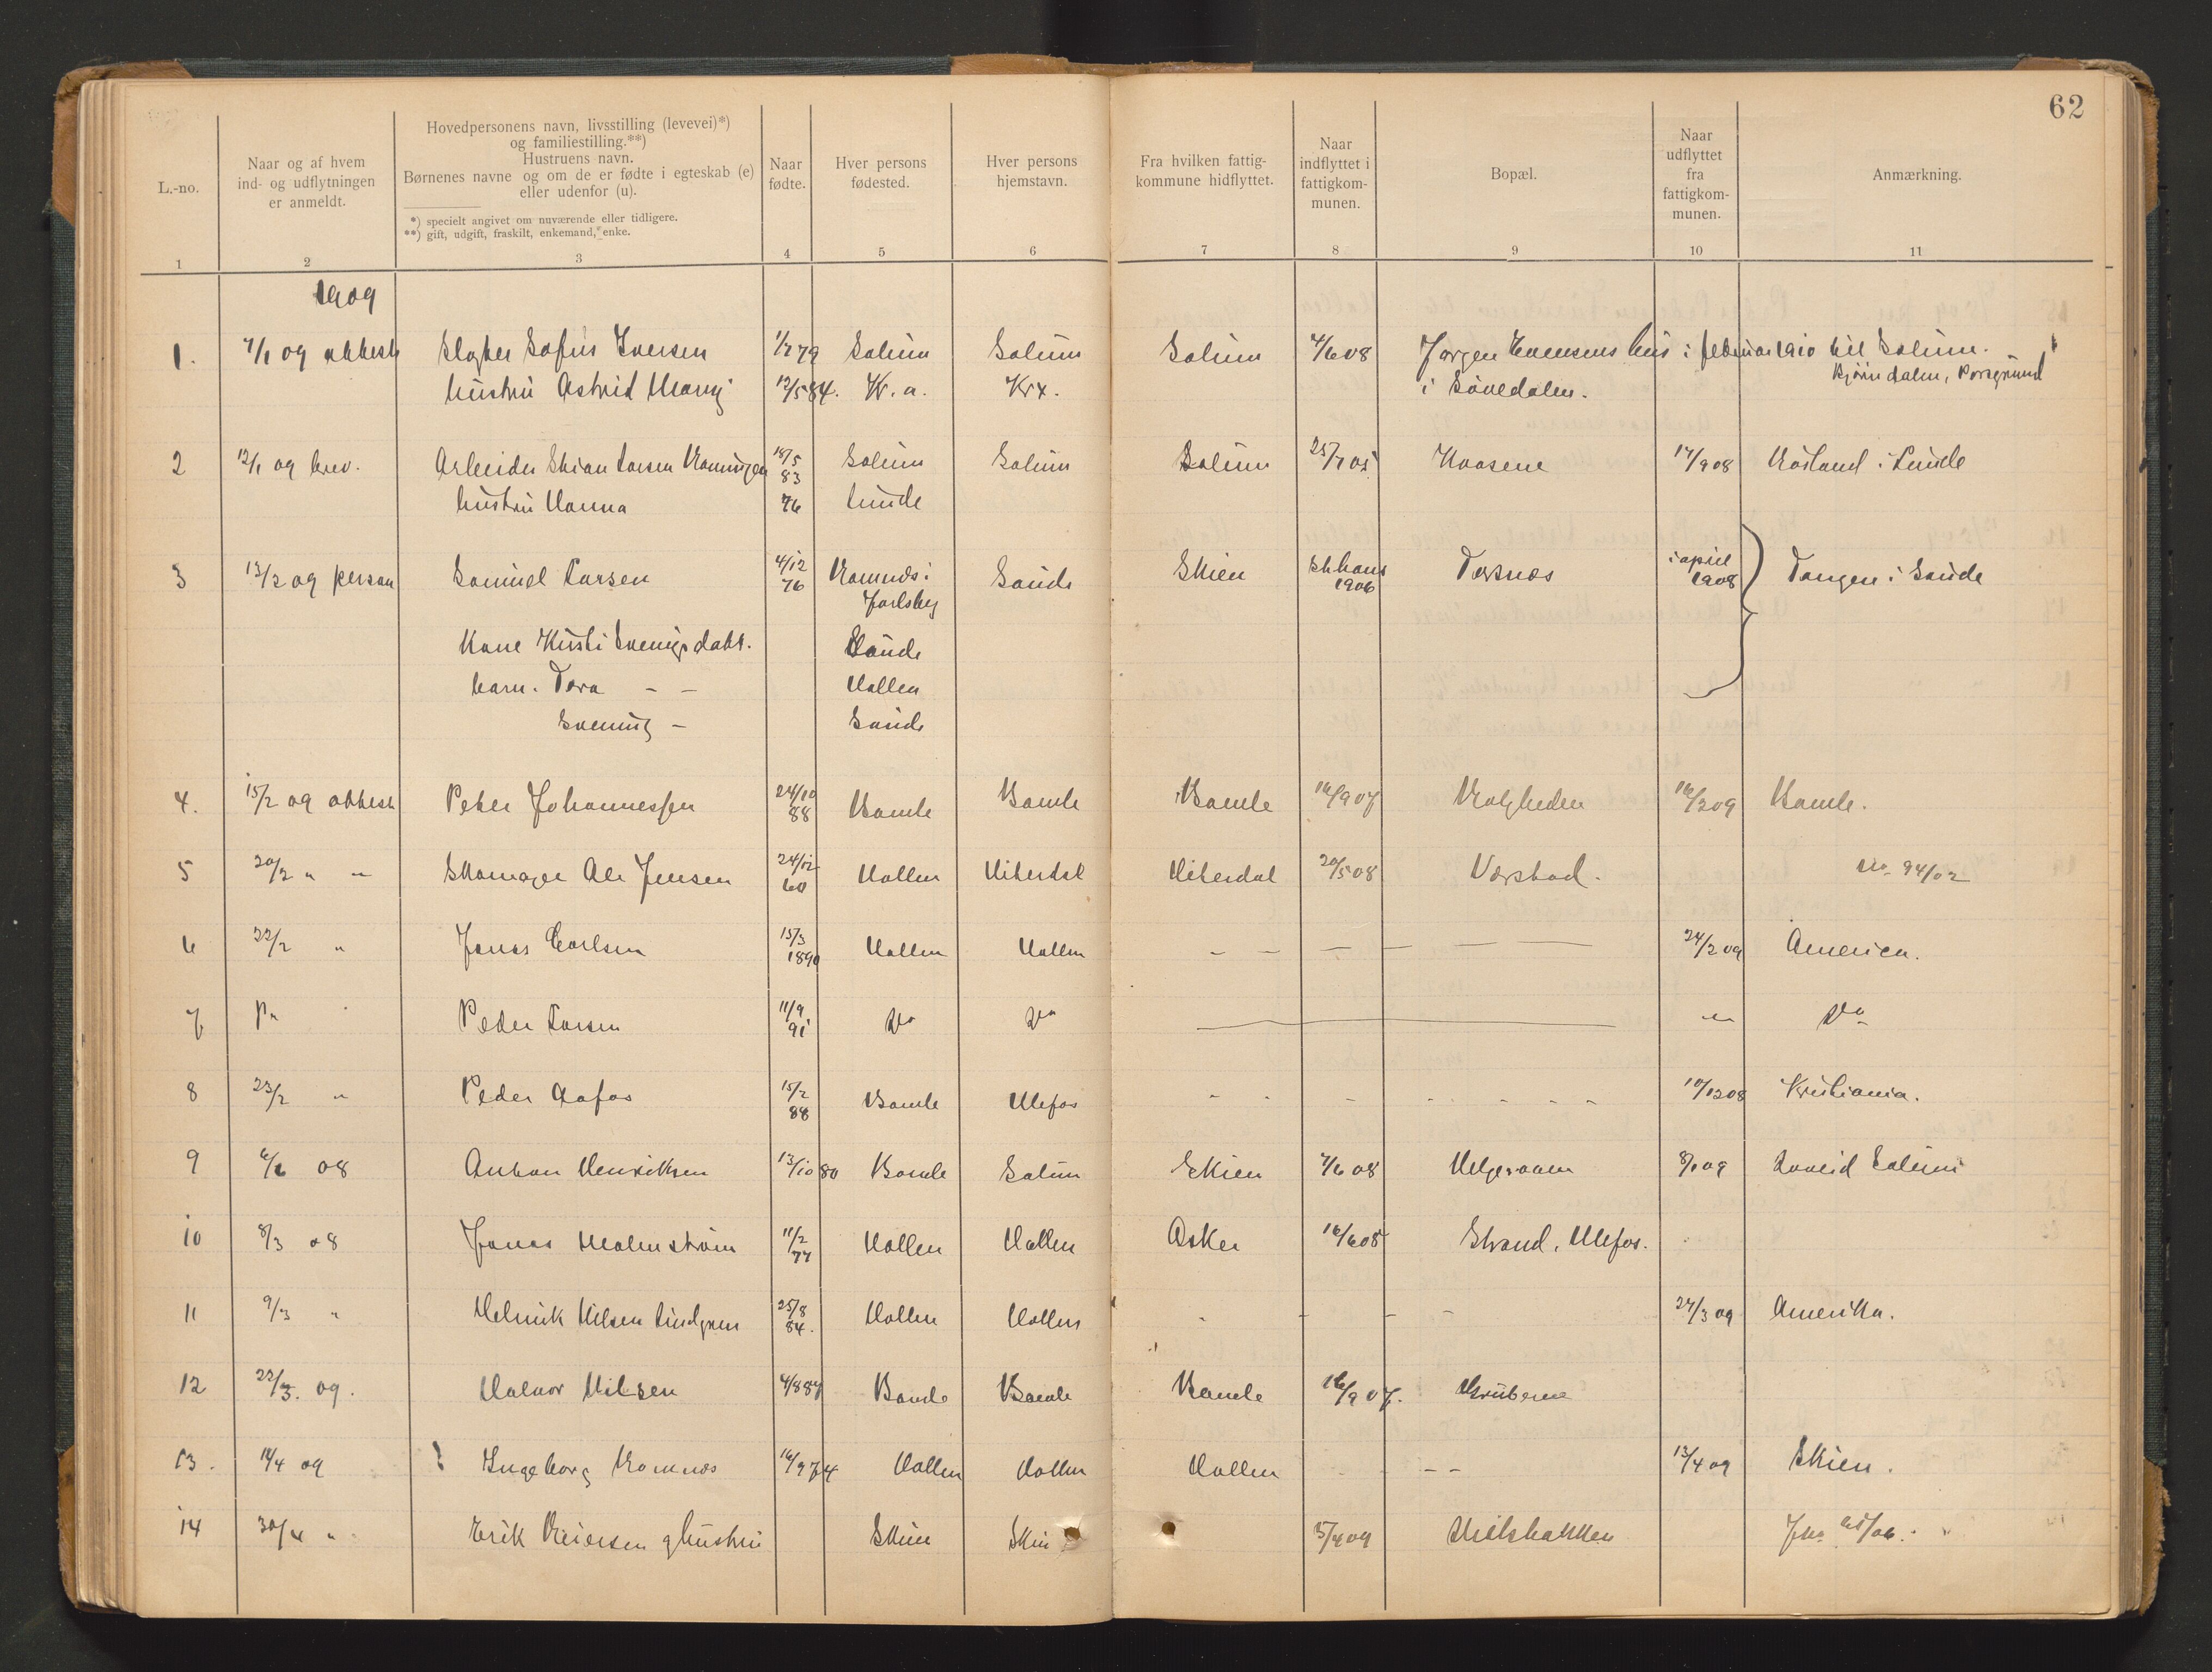 62
L.-no.
Naar og af hvem
ind- og udflytningen
er anmeldt.
Hovedpersonens navn, livsstilling (levevei)*)
og familiestilling.**)
Hustruens navn.
Børnenes navne og om de er fødte i egteskab (e)
eller udenfor (u).
*) specielt angivet om nuværende eller tidligere.
**) gift, udgift, fraskilt, enkemand, enke.
Naar
fødte.
Hver persons
fødested.
Hver persons
hjemstavn.
Fra hvilken fattig-
kommune hidflyttet.
Naar
indflyttet i
fattigkom-
munen.
Bopæl.
Naar
udflyttet
fra
fattigkom-
munen.
Anmærkning.
1 2 3 4 5 6 7 8 9 10 11
1909
1. 7/1 09 attest Sofus Iversen 79 Solum Solum Solum 4/6 08 Jørgen hus i februar 1910 til Solum.
hustru Astrid 12/5 84. Kr. a. Kra. i Sønedalen. Bjørndalen, Porsgrund
2 12/1 09 brev. Arbeider Larsen 18/5 83 Solum Solum Solum 25/7 05 Kaasene 17/9 08 i Lunde
hustru Hanna 76 Lunde
3 13/2 09 person Samuel Larsen 4/12 76 Ramnæs i Saude Skien St.hans 1906 i april 1908 Tangen i Saude
Jarlsberg
Kone Kirsti datt. Saude
barn. Tora - - Hollen
Svenung - Saude
4. 15/2 09 attest Peter Johannessen 24/10 88 Bamle Bamle Bamle 16/9 07 16/2 09 Bamle.
5 20/2 " " Skomager Ole Jensen 24/12 60 Hollen Hiterdal Hiterdal 20/5 08 Værstad. 94/02
6 22/2 " Jonas Carlsen 15/3 1890 Hollen Hollen - - - - - 24/2 09 America.
7 Peder Larsen 11/9 91 do do - " - do
8 23/2 " Peder Aafos 15/2 88 Bamle Ulefos - - - - - - 10/12 08 Kristiania.
9 6/6 08 Anton Henriksen 13/10 80 Bamle Solum Skien 4/6 08 Helgeraaen 8/1 09 Solum
10 8/3 08 Jonas Malmstrøm 11/2 77 Hollen Hollen Asker 16/6 08 Strand, Ulefos.
11 9/3 " Helmik Nilsen Lindgren 25/8 84. Hollen Hollen - - - - 24/3 09 Amerika.
12 22/3. 09. Halvor Nilsen 4/8 87 Bamle Bamle Bamle 16/9 07. Gruberne
13. 14/4 09 Ingeborg Romnes 16/9 74 Hollen Hollen Hollen - - - 13/4 09 Skien.
14 30/4 " Erik Reiersen og hustru Skien Skien 5/4 09